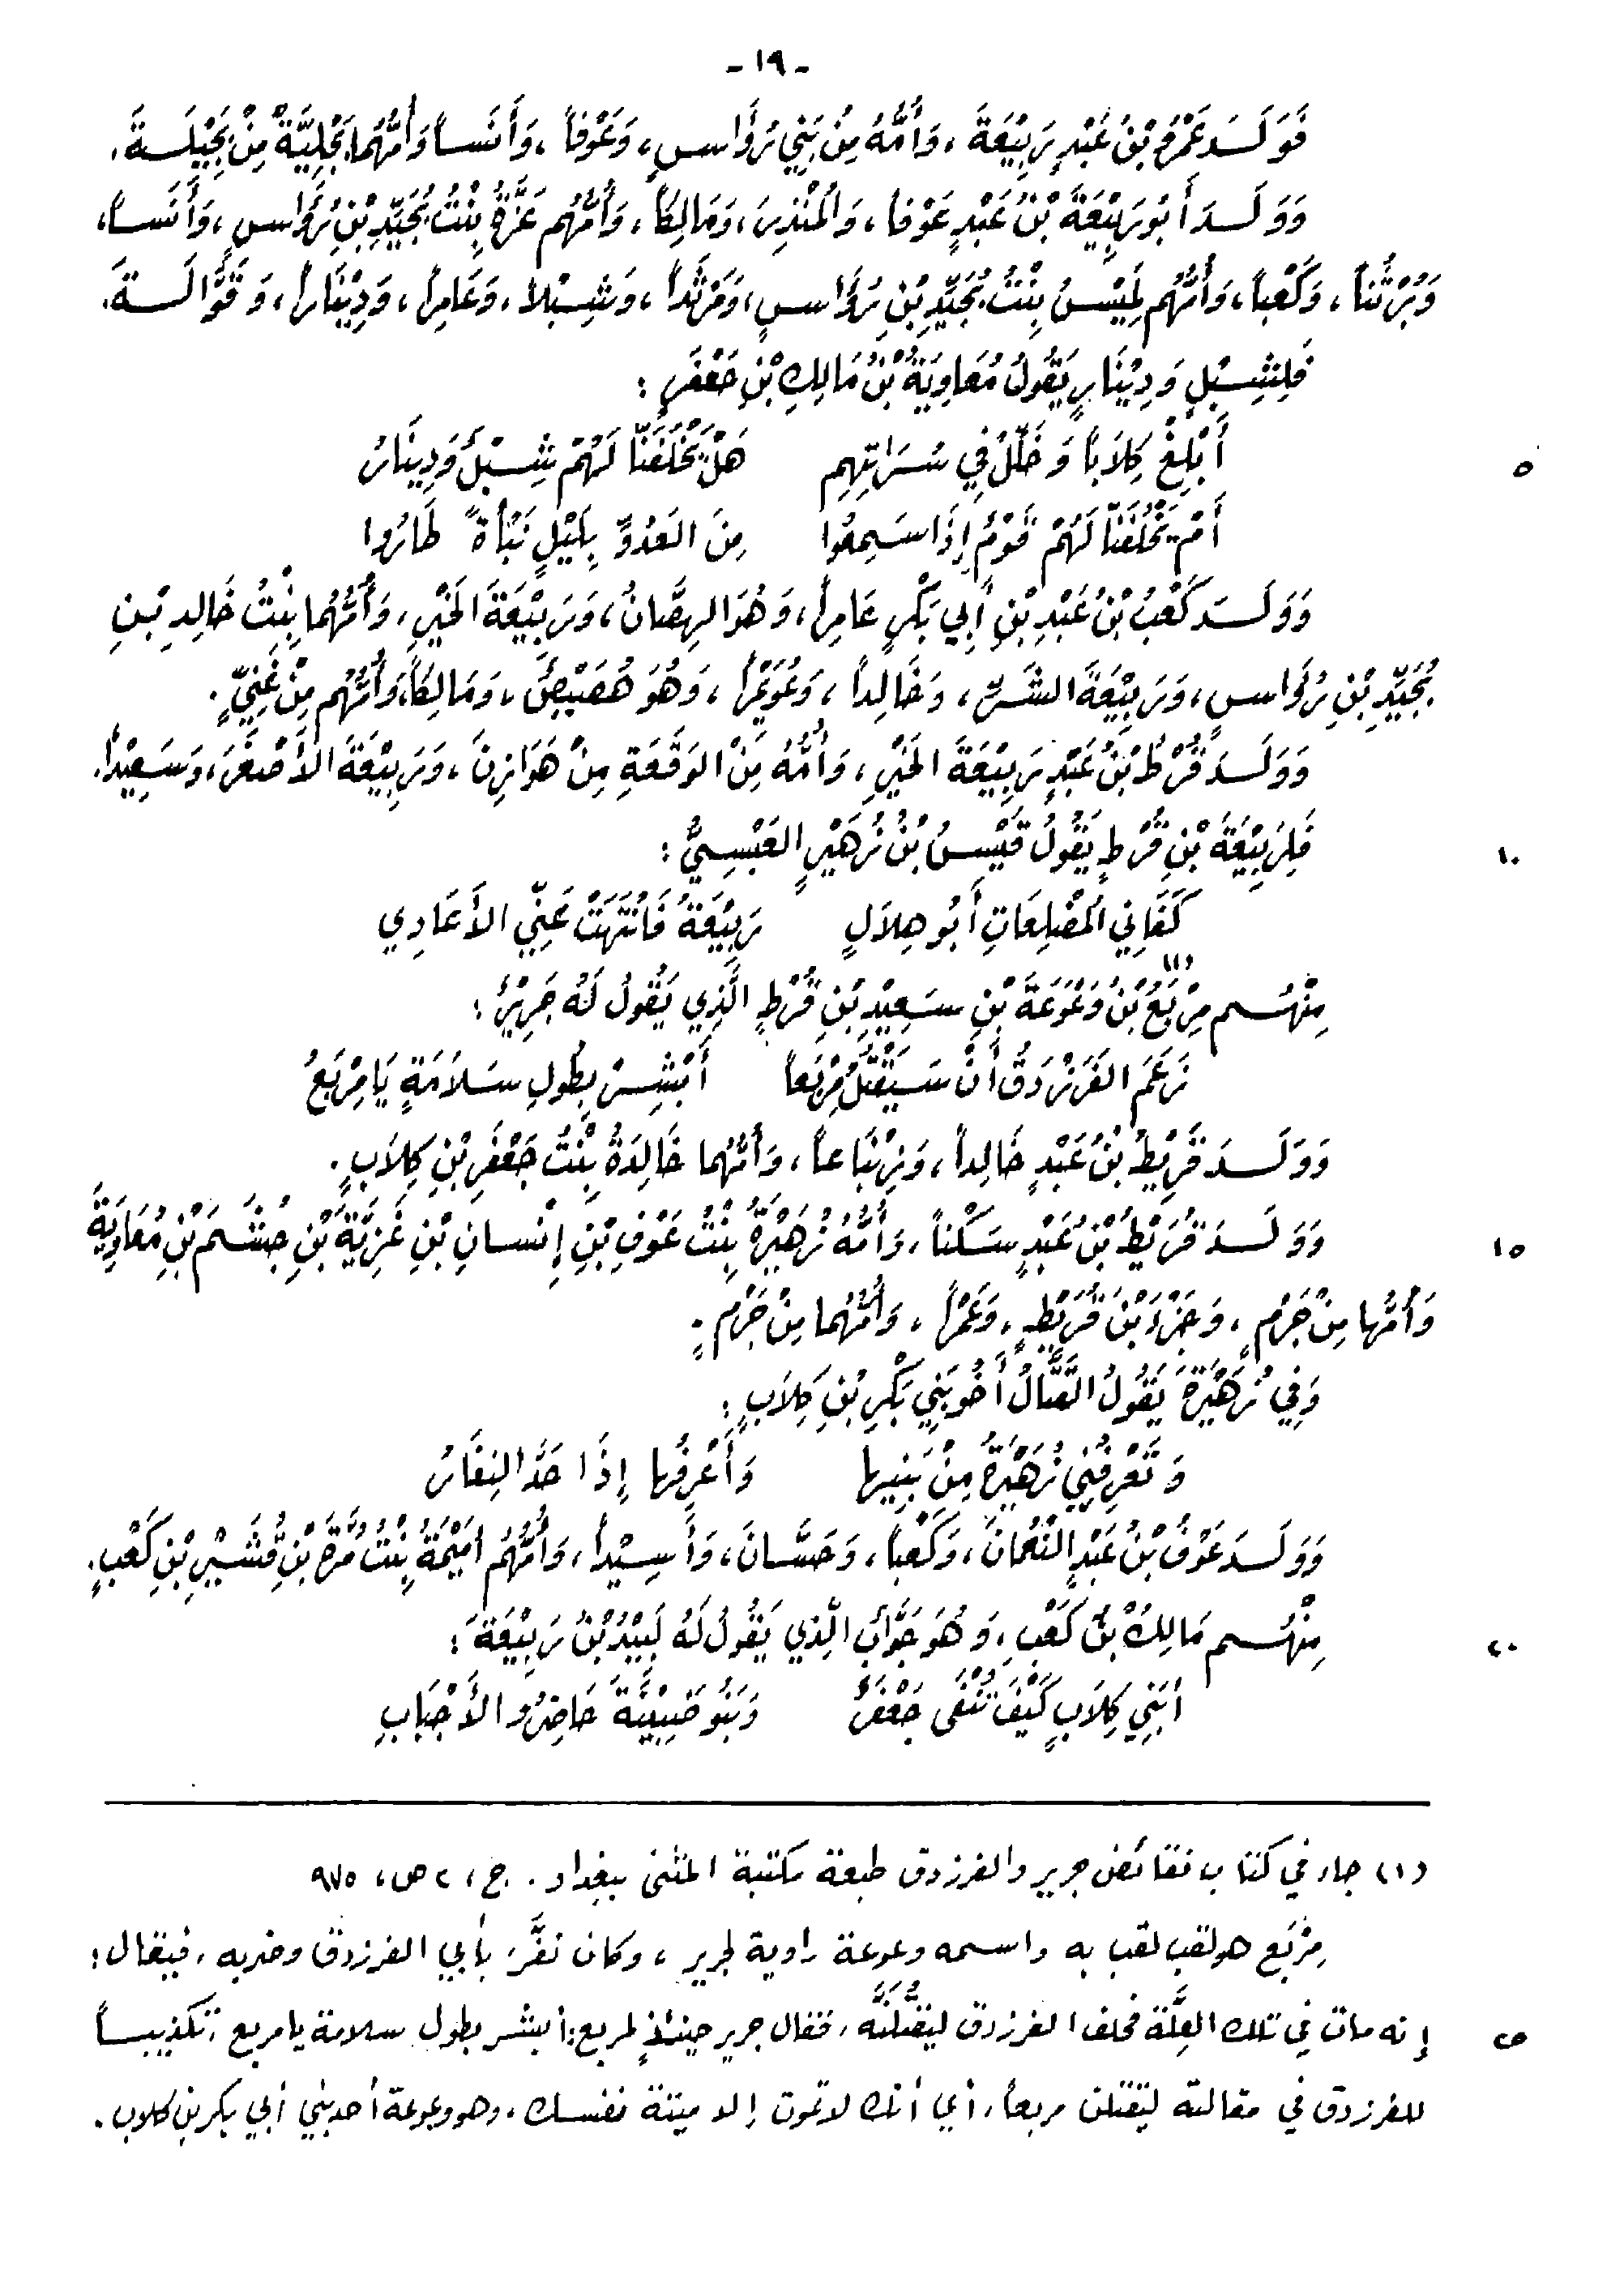 - ١٩ -
فَوَلَسدَ عَمْرُو بْنُ عَبْدٍ رَبِيْعَةَ ، وَأُمُّهُ مِنْ بَنِي رُؤَاسٍ ، وَعَوْفاً ، وَأَنَساً وَأُمُّهُما بَجْلِيَّةٌ مِنْ بَجِيْلَةَ .
وَوَلَسدَ أَبُو رَبِيْعَةَ بْنُ عَبْدٍ عَوْفاً ، وَالمُنْذِرَ ، وَمَالِكاً ، وَأُمُّهُم عَزَّةُ بِنْتُ بُجَيِّدِ بْنِ رُؤَاسٍ ، وَأَنَساً ،
وَبُرْثُناً ، وَكَعْباً ، وَأُمُّهُم لَمِيْسُ بِنْتُ بُجَيِّدِ بْنِ رُؤَاسٍ ، وَمَرْثَداً ، وَشِبْلاً ، وَعَامِراً ، وَدِيْنَاراً ، وَقَوَّالَةَ .
فَلِشِبْلٍ وَدِيْنَارٍ يَقُولُ مُعَاوِيَةُ بْنُ مَالِكِ بْنِ جَعْفَرٍ :
أَبْلِغْ كِلَاباً وَخَلِّلْ فِي سَرَاتِهِمِ هَلْ يَخْلُفَنَّا لَهُمْ شِبْلٌ وَدِينَارُ
٥
أَمْ يَخْلُفَنّا لَهُمْ قَوْمٌ إِذَا سَمِعُوا مِنَ العَدُوِّ بِلَيْلٍ نَبْأَةً طَارُوا
وَوَلَسدَ كَعْبُ بْنُ عَبْدِ بْنِ أَبِي بَكْرٍ عَامِراً ، وَهُوَ الهِصَّانُ ، وَرَبِيْعَةَ الخَيْرِ ، وَأُمُّهُما بِنْتُ خَالِدِ بْنِ
بُجَيِّدِ بْنِ رُؤَاسٍ ، وَرَبِيْعَةَ الشَّرِّ ، وَخَالِداً ، وَعُوَيْمِراً ، وَهُوَ هُصَيْصٌ ، وَمَالِكاً وَأُمُّهُم مِنْ غَنِيٍّ .
وَوَلَسدَ قُرْطُ بْنُ عَبْدٍ رَبِيْعَةَ الخَيْرِ ، وَأُمُّهُ مِنْ الوَقَعَةِ مِنْ هَوَازِنَ ، وَرَبِيْعَةَ الأَصْغَرَ ، وَسَعِيْداً .
فَلِرَبِيْعَةَ بْنِ قُرْطٍ يَقُولُ قَيْسُ بْنُ زُهَيْرٍ العَبْسِيُّ :
١٠
كَفَانِي المُضْلِعَاتِ أَبُو هِلَالٍ رَبِيْعَةُ فَانْتَهَتْ عَنِّي الأَعَادِي
مِنْهُسم مِرْبَعُ (١) بْنُ وَعْوَعَةَ بْنِ سَعِيْدِ بْنِ قُرْطٍ الَّذِي يَقُولُ لَهُ جَرِيْرٌ :
زَعَمَ الفَرَزْدَقُ أَنْ سَيَقْتُلُ مِرْبَعاً أَبْشِرْ بِطُولِ سَلَامَةٍ يَا مِرْبَعُ
وَوَلَسدَ قَرِيْطُ بْنُ عَبْدٍ خَالِداً ، وَزِنْبَاعاً ، وَأُمُّهُما خَالِدَةُ بِنْتُ جَعْفَرِ بْنِ كِلَابٍ .
وَوَلَسدَ قُرَيْطُ بْنُ عَبْدٍ سَكْناً ، وَأُمُّهُ زُهَيْرَةُ بِنْتُ عَوْفِ بْنِ إِنْسانِ بْنِ غَزِيَّةَ بْنِ جُشَمَ بْنِ مُعَاوِيَةَ
١٥
وَأُمُّها مِنْ جَرْمٍ ، وَجَزْءَ بْنَ قُرَيْطٍ ، وَعَمْراً ، وَأُمُّهُما مِنْ جَرْمٍ .
وَفِي زُهَيْرَةَ يَقُولُ القَتَّالُ أَخُو بَنِي بَكْرِ بْنِ كِلَابٍ :
وَتَعْرِفُنِي زُهَيْرَةُ مِنْ بَنِيها وَأَعْرِفُها إِذَا جَدَّ النِفَارُ
وَوَلَسدَ عَوْفُ بْنُ عَبْدٍ النُّعْمَانَ ، وَكَعْباً ، وَحَسَّانَ ، وَأَسِيْداً ، وَأُمُّهُم أُمَيْمَةُ بِنْتُ مُرَّةَ بْنِ قُشَيْرِ بْنِ كَعْبٍ .
مِنْهُسم مَالِكُ بْنُ كَعْبٍ ، وَهُوَ جَوَّابٌ الَّذِي يَقُولُ لَهُ لَبِيْدُ بْنُ رَبِيْعَةَ :
٢٠
أَبَنِي كِلَابٍ كَيْفَ تُنْفَى جَعْفَرٌ وَبَنُو ضَبِيْنَةَ حَاضِرُو الأَجْبَابِ
(١) جاء في كتاب نقائض جرير والفرزدق طبعة مكتبة المثنى ببغداد . ج ، ٢ ص ، ٩٧٥
مِرْبَع هو لقب لقب به واسمه وعوعة راوية لجرير ، وكان نفَّرَ بأبي الفرزدق وضربه ، فيقال :
إنه مات في تلك العِلَّة فحلف الفرزدق ليَقْتُلَنَّه ، فقال جرير حينئذٍ لمربع : أبشر بطول سلامة يا مربع ، تكذيباً
٢٥
للفرزدق في مقالته ليقتلن مربعاً ، أي أنك لا تموت إلا ميتة نفسك ، وهو وعوعة أحد بني أبي بكر بن كلاب .